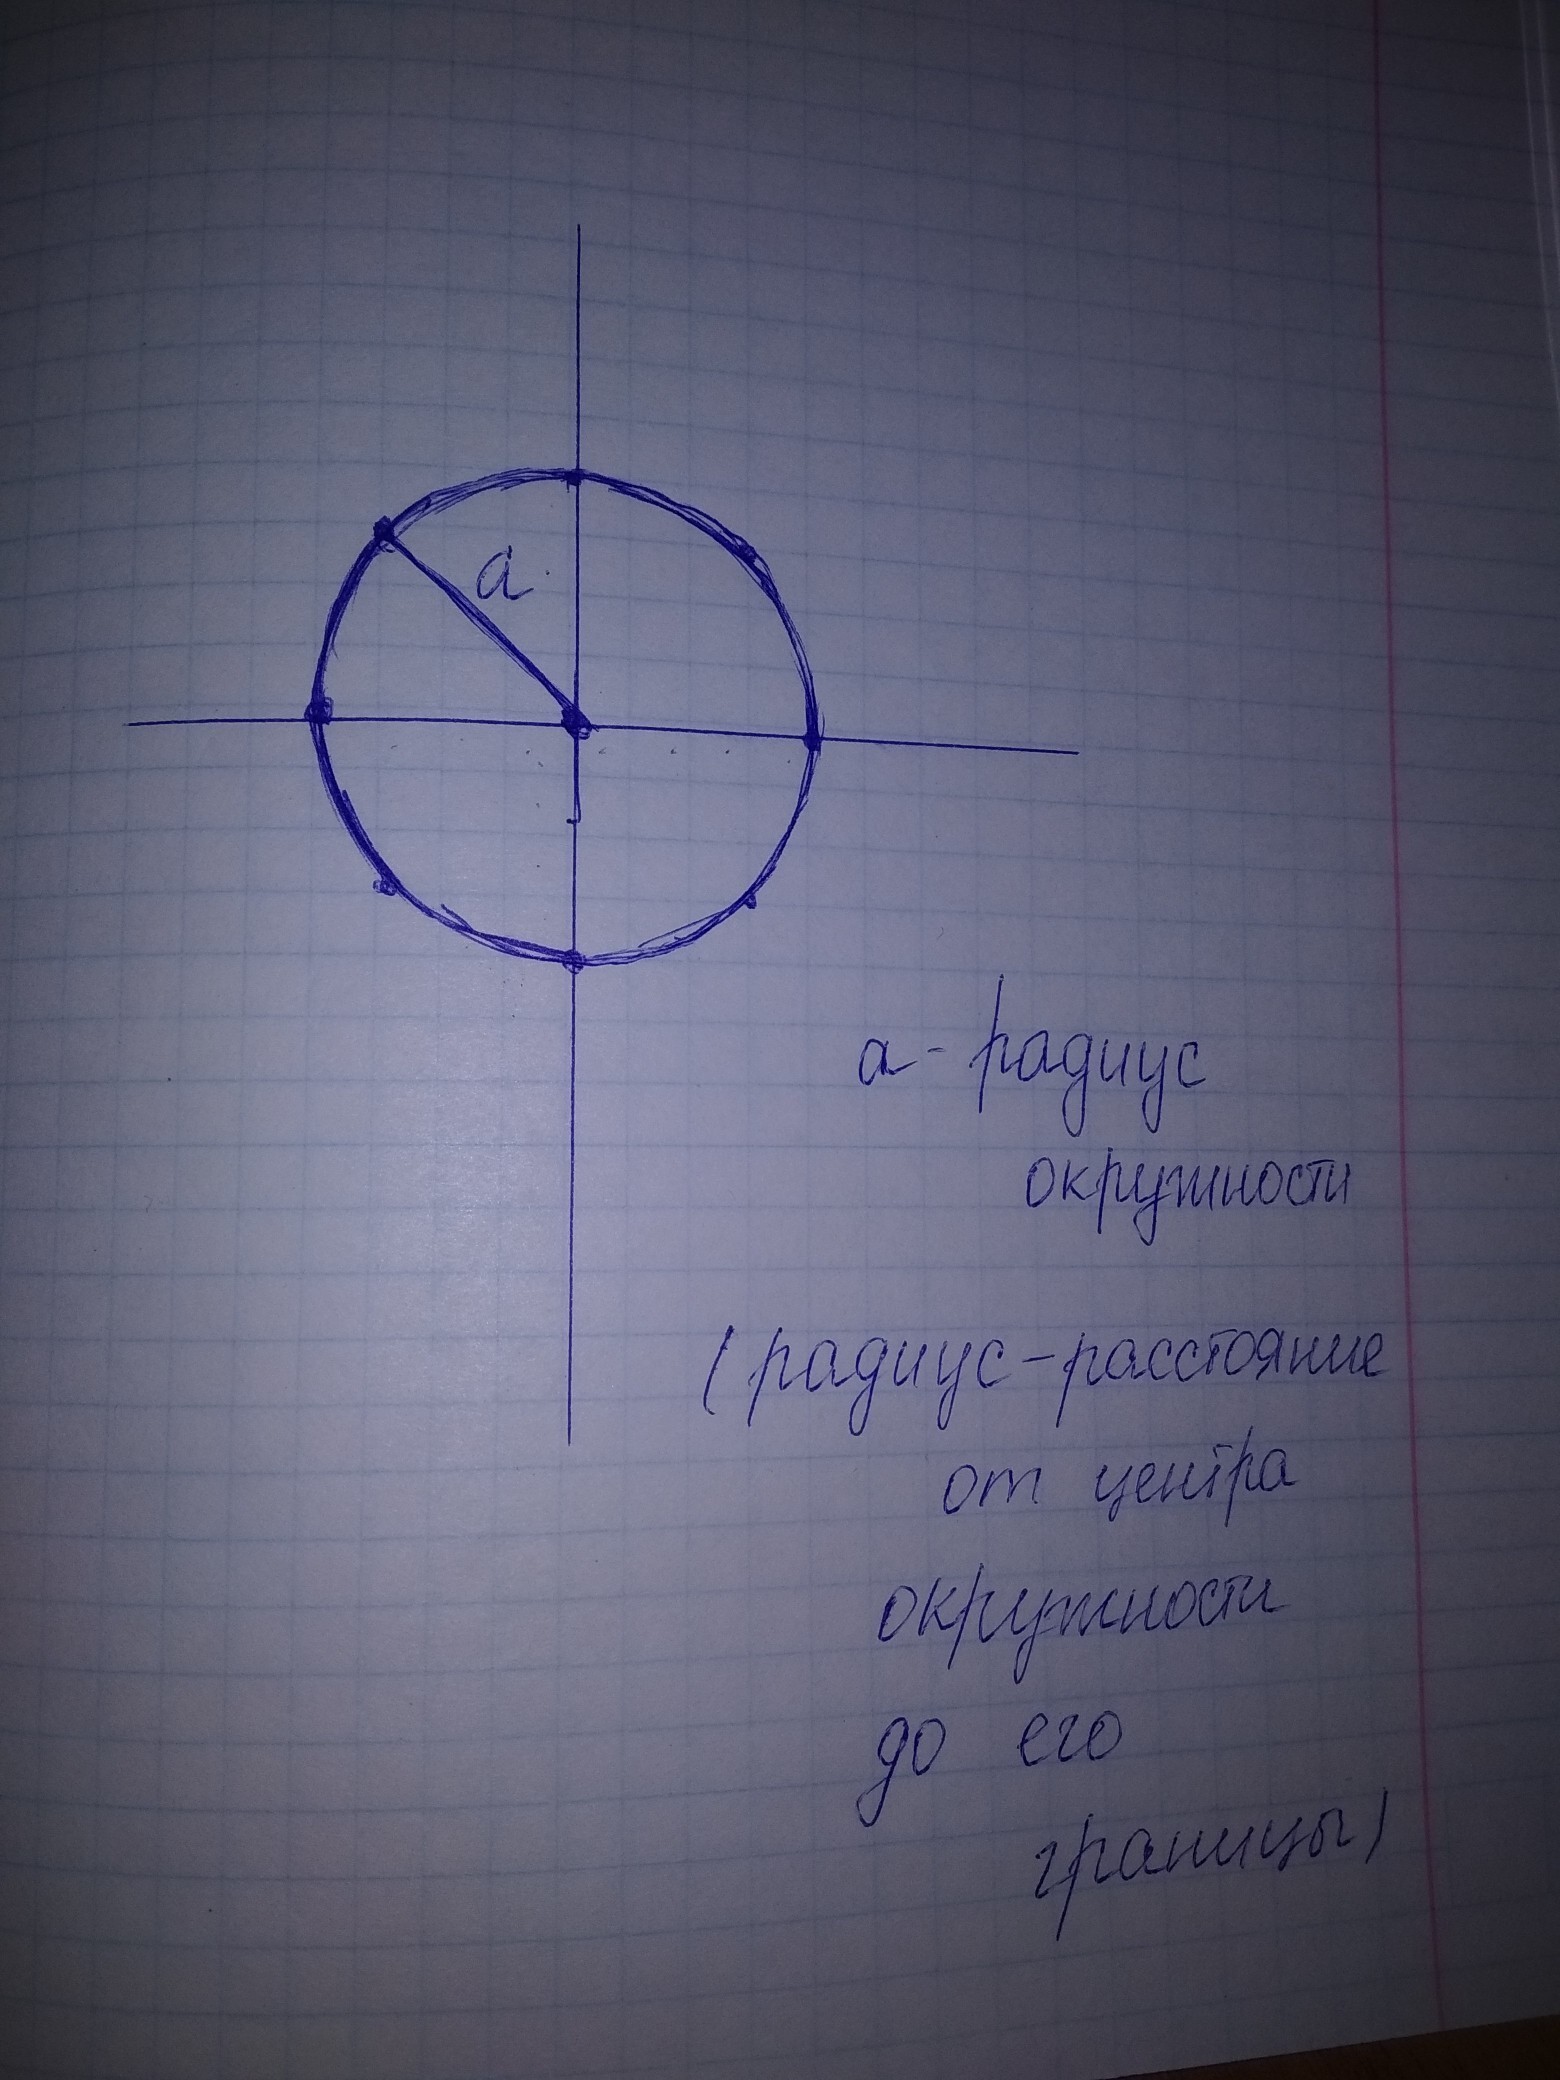 a
а - радиус
окружности
(радиус - расстояние
от центра
окружности
до его
границы)